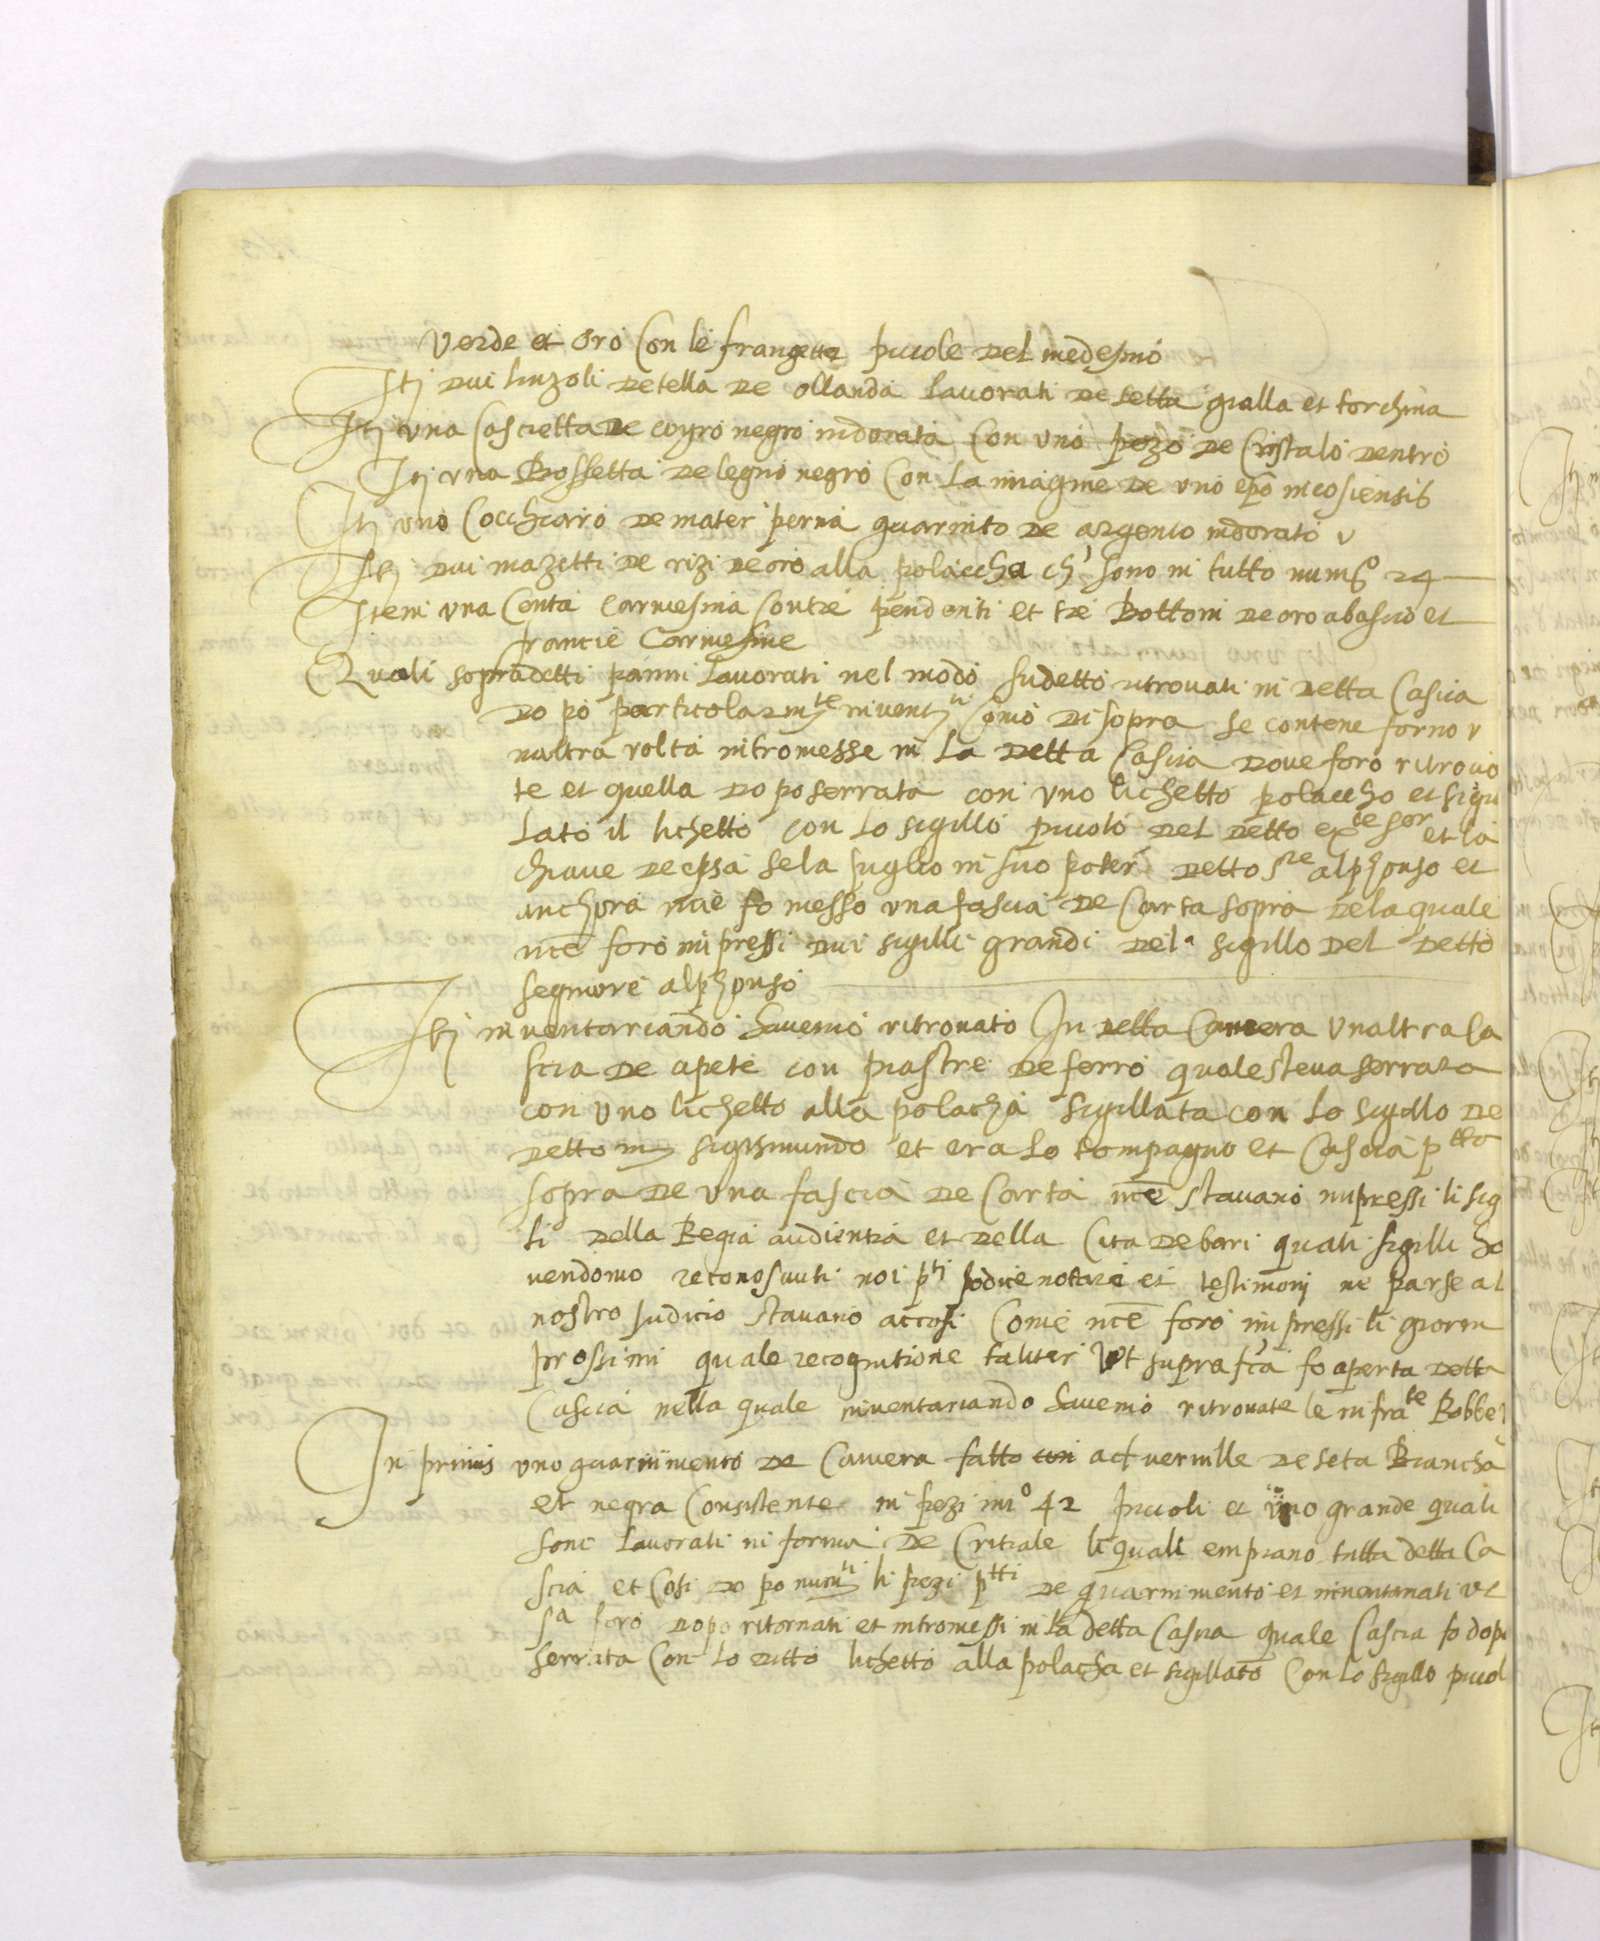 Verde et oro Con le frangette picole del medesmo
Itj dui linzoli de tella de ollanda Lavorati de setta gialla et torchina
Itj una Cascietta de coyro negro indorata Con uno pezo de Cristalo dentro
Itj una Bossetta de legno negro Con La imagine de uno epo
Itj uno Cocchiaro de mater perna guarnito de argento indorato
Itj dui mazetti de rizi de oro alla polaccha ch' sono in tutto numro 24
Item una Centa Carmesina con tre pendenti et tre Bottoni de oro abascio et
francie Carmesine
Quali sopradetti panni Lavorati nel modo sudetto ritrovati in detta Cascia
do po particolarmte inventti como di sopra se contene forno u
naltra volta intromesse in La detta Cascia dove foro ritrova
te et quella do po serrata con uno lichetto polaccho et sigil
Lato il lichetto con Lo sigillo picolo del detto exte sor et la
chiave de epsa se la piglio in suo poter detto sre alphonso et
anchora nce fo messo una fascia de Carta sopra dela quale
nce foro impressi dui sigilli grandi del sigillo del detto
segniore alphonso
Itj inventariando havemo ritrovato In detta Camera Unaltra Ca
scia de apete con piastre de ferro quale steva serrata
con uno lichetto alla polacha sigillata con Lo sigillo de
detto sigismundo et era Lo compagno et Cascia ptto
sopra de una fascia de Carta nce stavano impressi li sig
li della Regia audientia et della Cita de bari quali sigilli ha
vendono reconosciuti noi pti iodice notare et testimonij ne parse al
nostro iudicio stavano accosi Come nce foro impressi li giorni
prossimi quale recognitione taliter ut supra fca fo aperta detta
Cascia nella quale inventariando havemo ritrovate le infrate Robbe
In primis uno guarnimento de Camera fatto con de seta Biancha
et negra Consistente in pezi nro 42 picoli et uno grande quali
sono Lavorati in forma de li quali empiano tutta detta Ca
scia et Cosi do po li pezi ptti de guarnimento et inventariati ut
sa foro dopo ritornati et intromessi in La detta Cascia quale Cascia fo dopo
serrata Con Lo ditto lichetto alla polacha et sigillato Con Lo sigillo picol